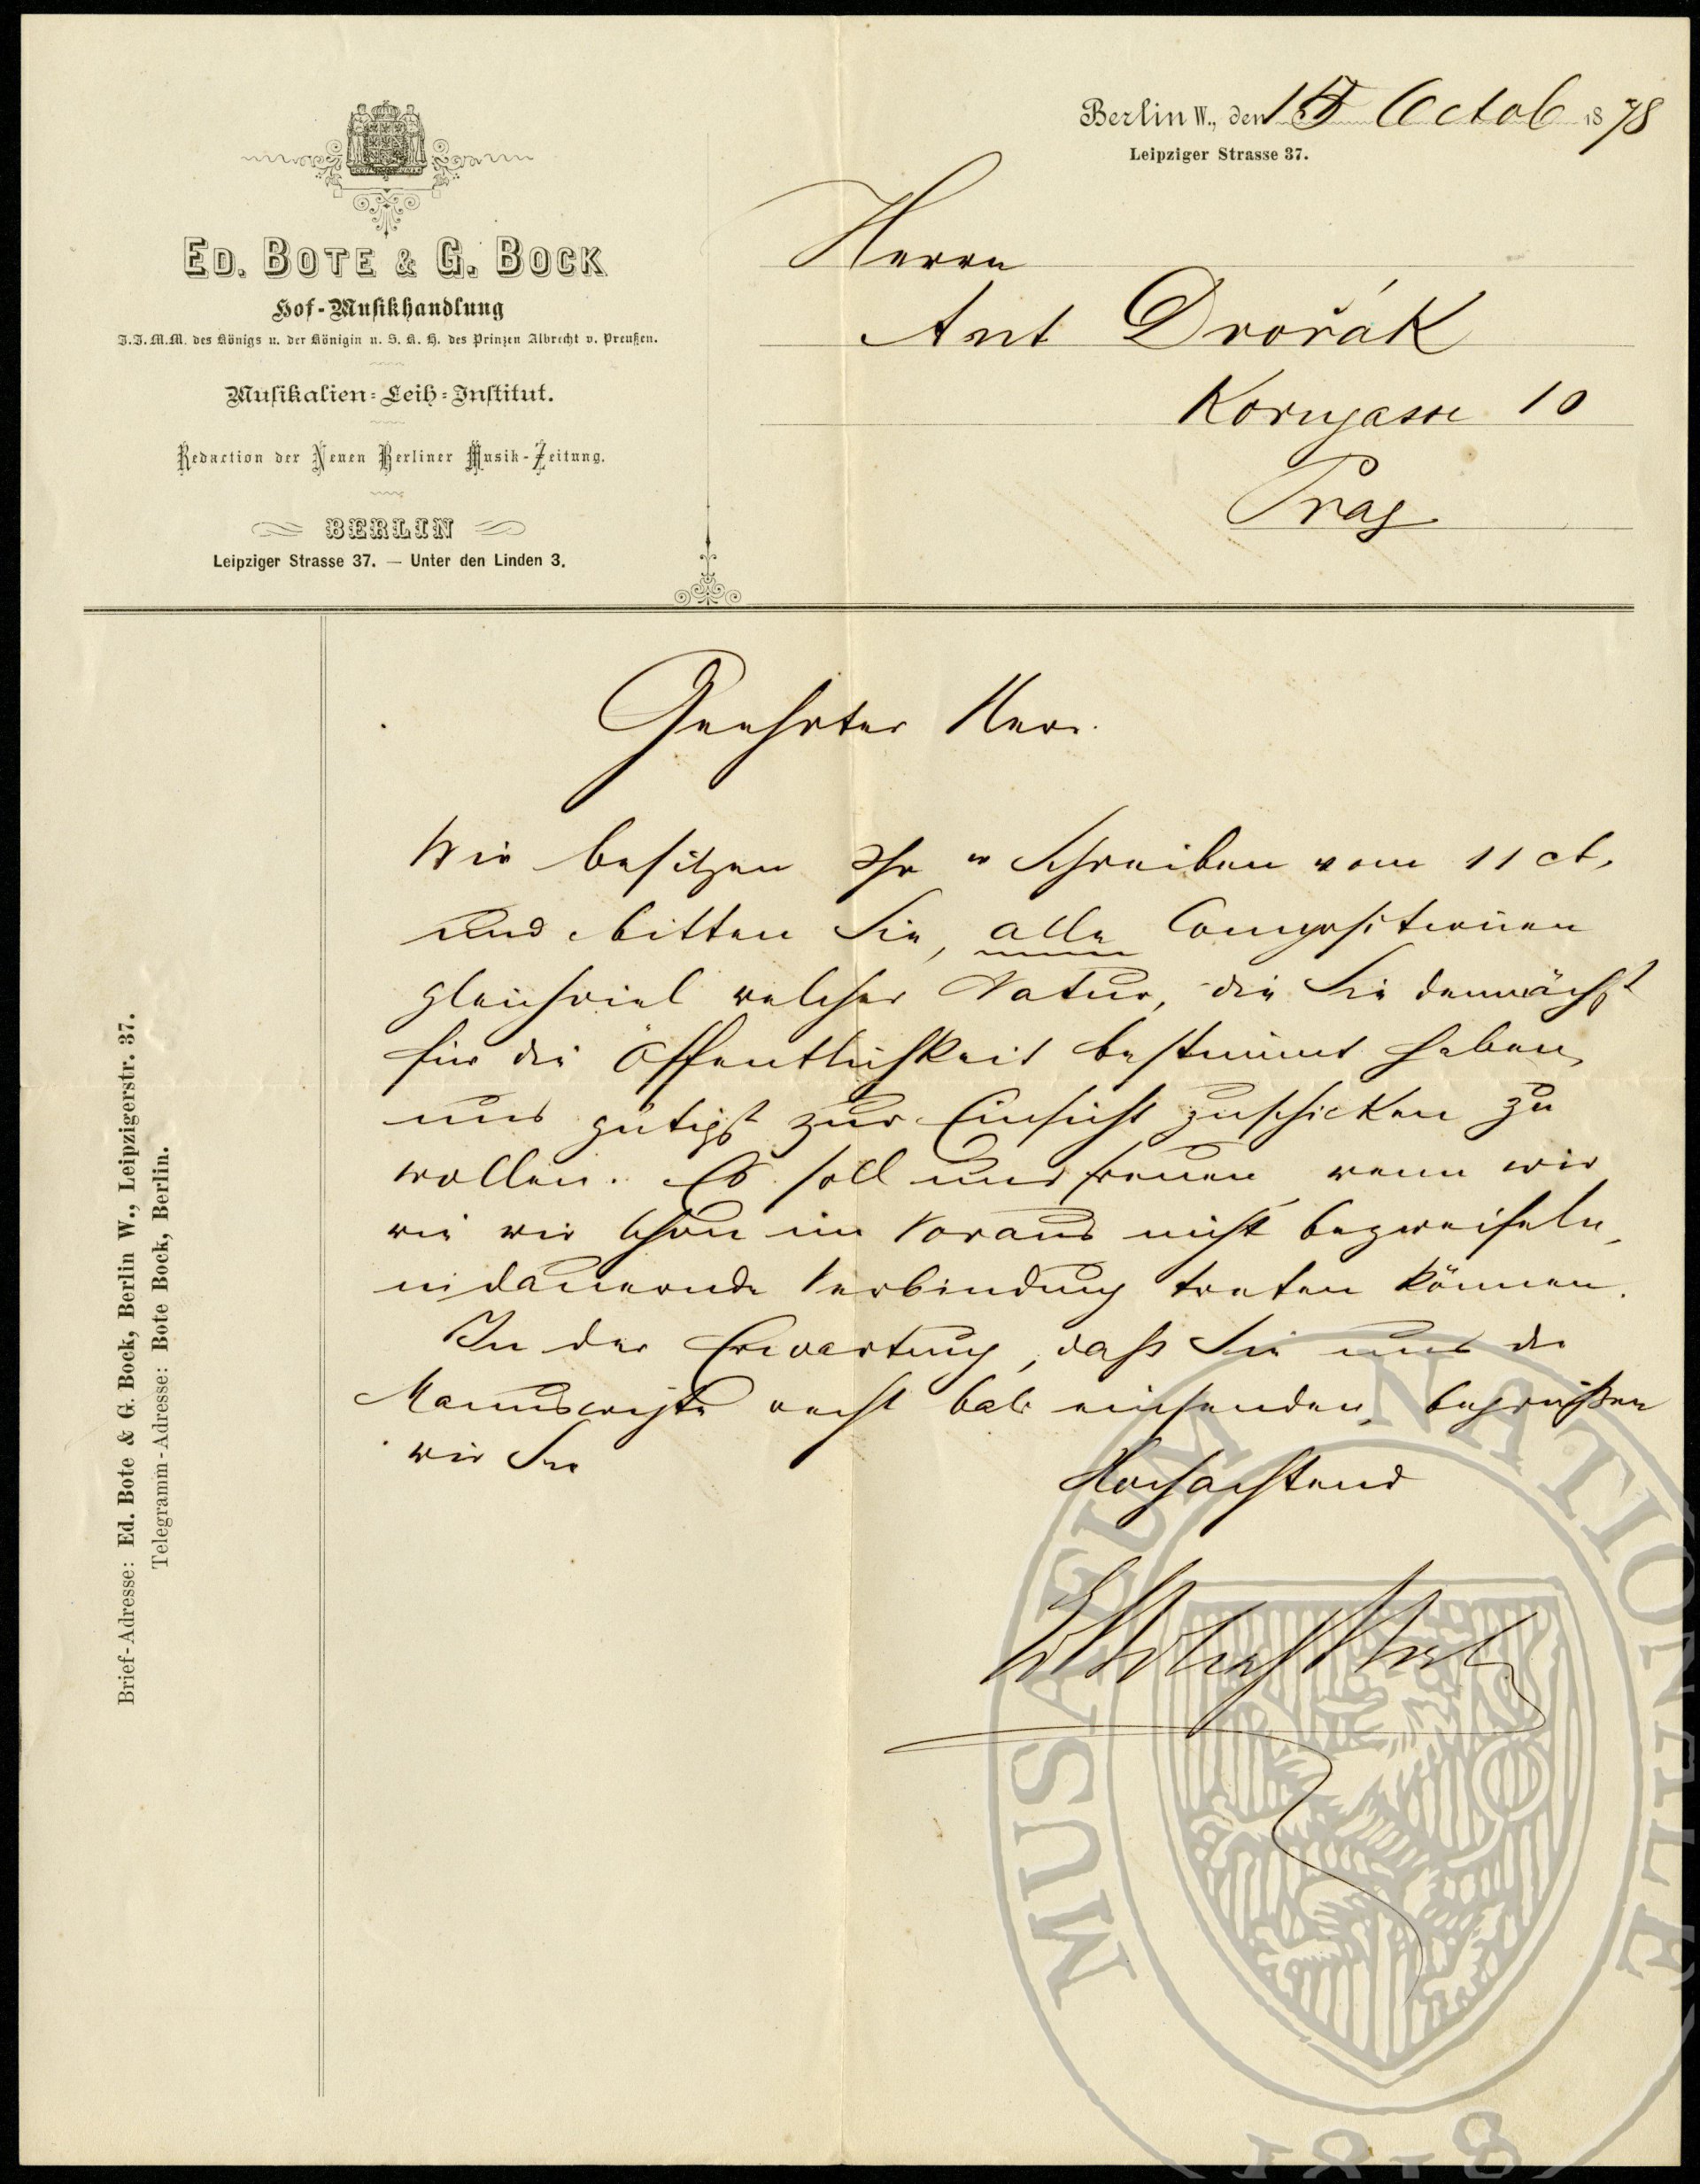 Berlin W., den 15 Octob 1878
Leipziger Strasse 37.
ED. BOTE & G. BOCK
Hof-Musikhandlung
J.J.M.M. des Königs u. der Königin u. S. K. H. des Prinzen Albrecht v. Preußen.
Musikalien-Leih-Institut.
Redaction der Neuen Berliner Musik-Zeitung.
BERLIN
Leipziger Strasse 37. — Unter den Linden 3.
Herrn
Ant Dvořák
Korngasse 10
Prag
Brief-Adresse: Ed. Bote & G. Bock, Berlin W., Leipzigerstr. 37.
Telegramm-Adresse: Bote Bock, Berlin.
Geehrter Herr.
Wir besitzen Ihr Schreiben vom 11 ct.
und bitten Sie, alle Compositionen
gleichviel welcher Natur, die Sie demnächst
für die Öffentlichkeit bestimmt haben,
uns gütigst zur Einsicht zuschicken zu
wollen. Es soll uns freuen, wenn wir
wie wir schon im Voraus nicht bezweifeln,
in dauernde Verbindung treten können.
In der Erwartung, daß Sie uns die
Manuscripte recht bald einsenden, begrüßen
wir Sie
Hochachtend
MUSAEUM NATIONALE
1818